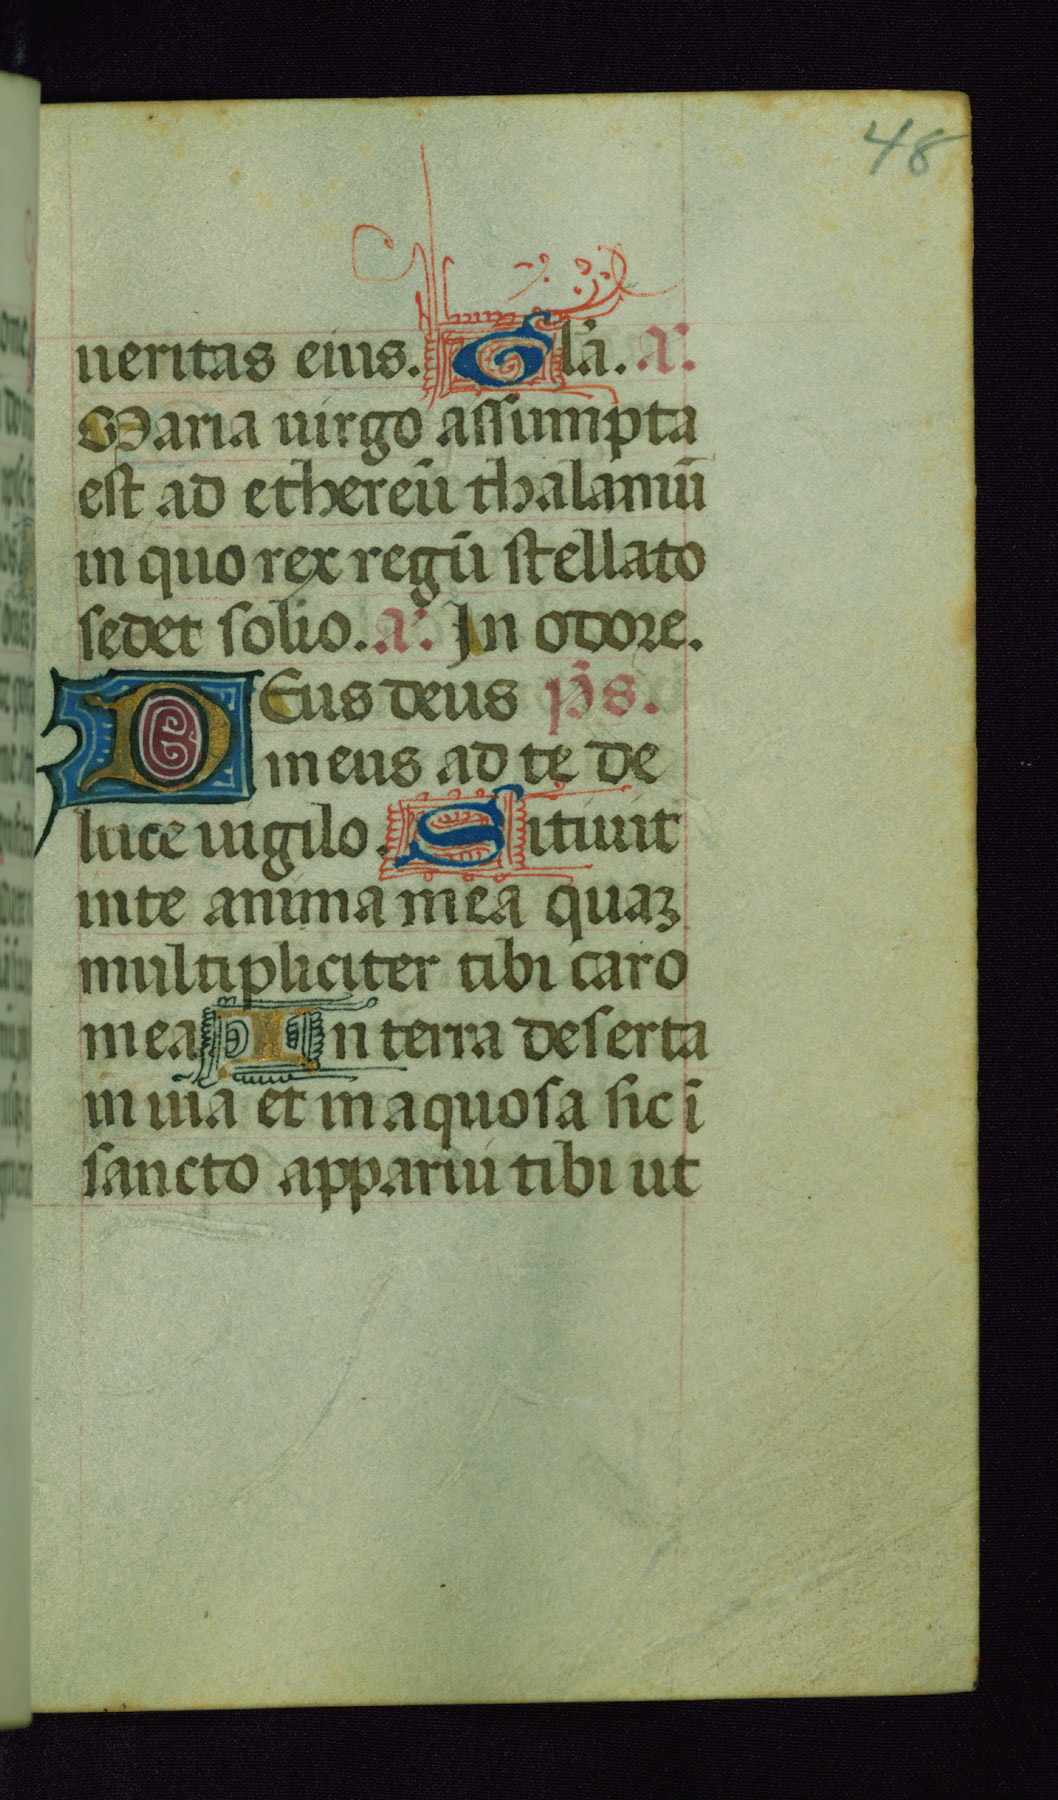 48
ueritas eius. Glã. a͂.
Maria uirgo assumpta
est ad ethereũ thalamũ
in quo rex regũ stellato
sedet solio. a͂. In odore.
DEus deus p̃s.
meus ad te de
luce uigilo. Sitiuit
inte anima mea quaꝫ
multipliciter tibi caro
mea In terra deserta
in uia et in aquosa sic ĩ
sancto apparui tibi ut